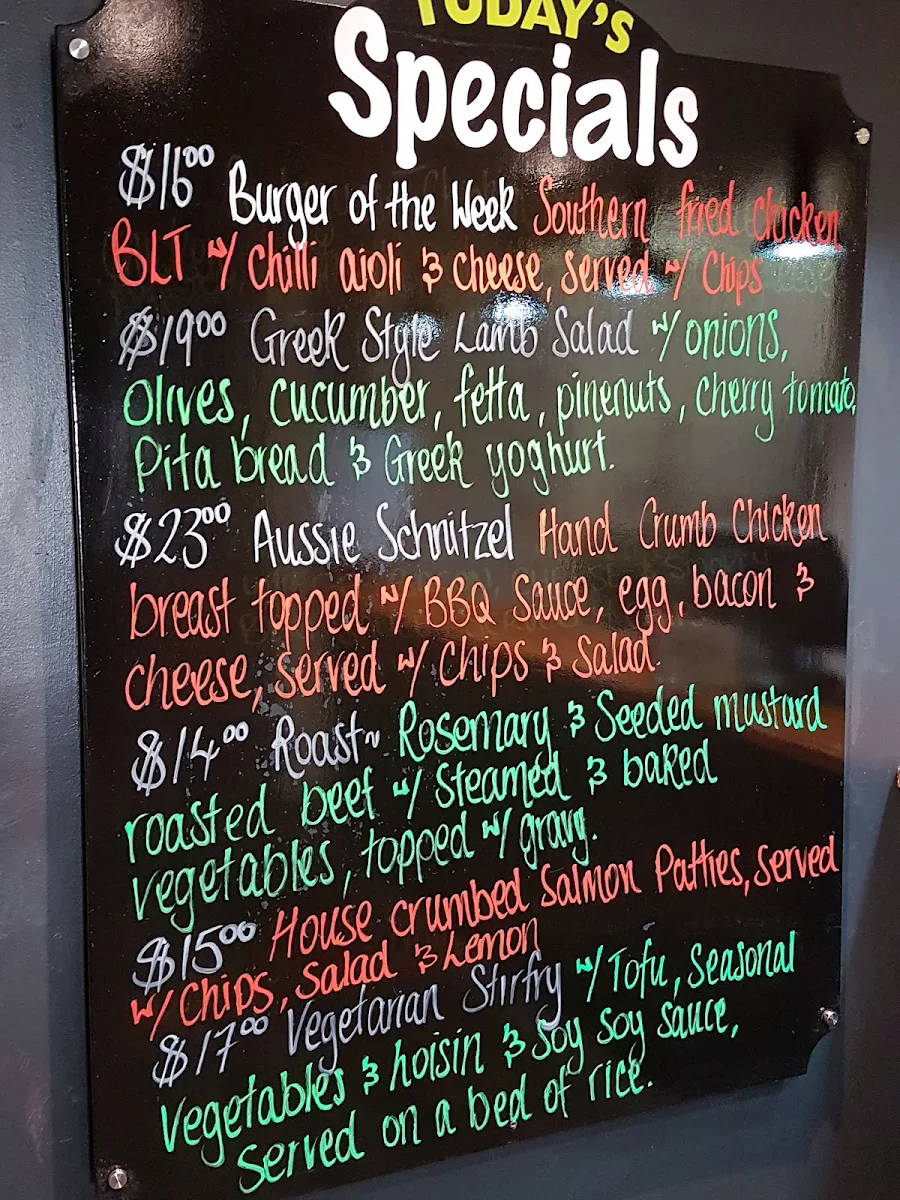 TODAY'S
Specials
$16.00 Burger of the Week Southern fried chicken
BLT w/ chilli aioli & cheese, served w/ Chips
$19.00 Greek Style Lamb Salad w/ onions,
Olives, cucumber, fetta, pinenuts, cherry tomato,
Pita bread & Greek yoghurt.
$23.00 Aussie Schnitzel Hand Crumb Chicken
breast topped w/ BBQ Sauce, egg, bacon &
cheese, served w/ Chips & Salad.
$14.00 Roast~ Rosemary & Seeded mustard
roasted beef w/ Steamed & baked
vegetables, topped w/ gravy.
$15.00 House crumbed Salmon Patties, served
w/ Chips, Salad & Lemon
$17.00 Vegetarian Stirfry w/ Tofu, Seasonal
Vegetables & hoisin & soy soy sauce,
Served on a bed of rice.